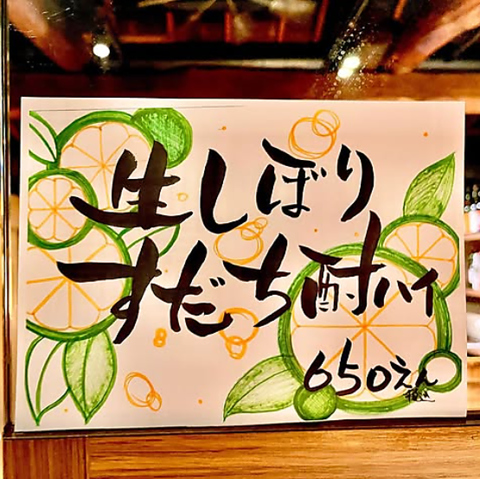 生しぼり
すだち酎ハイ
650えん
税込